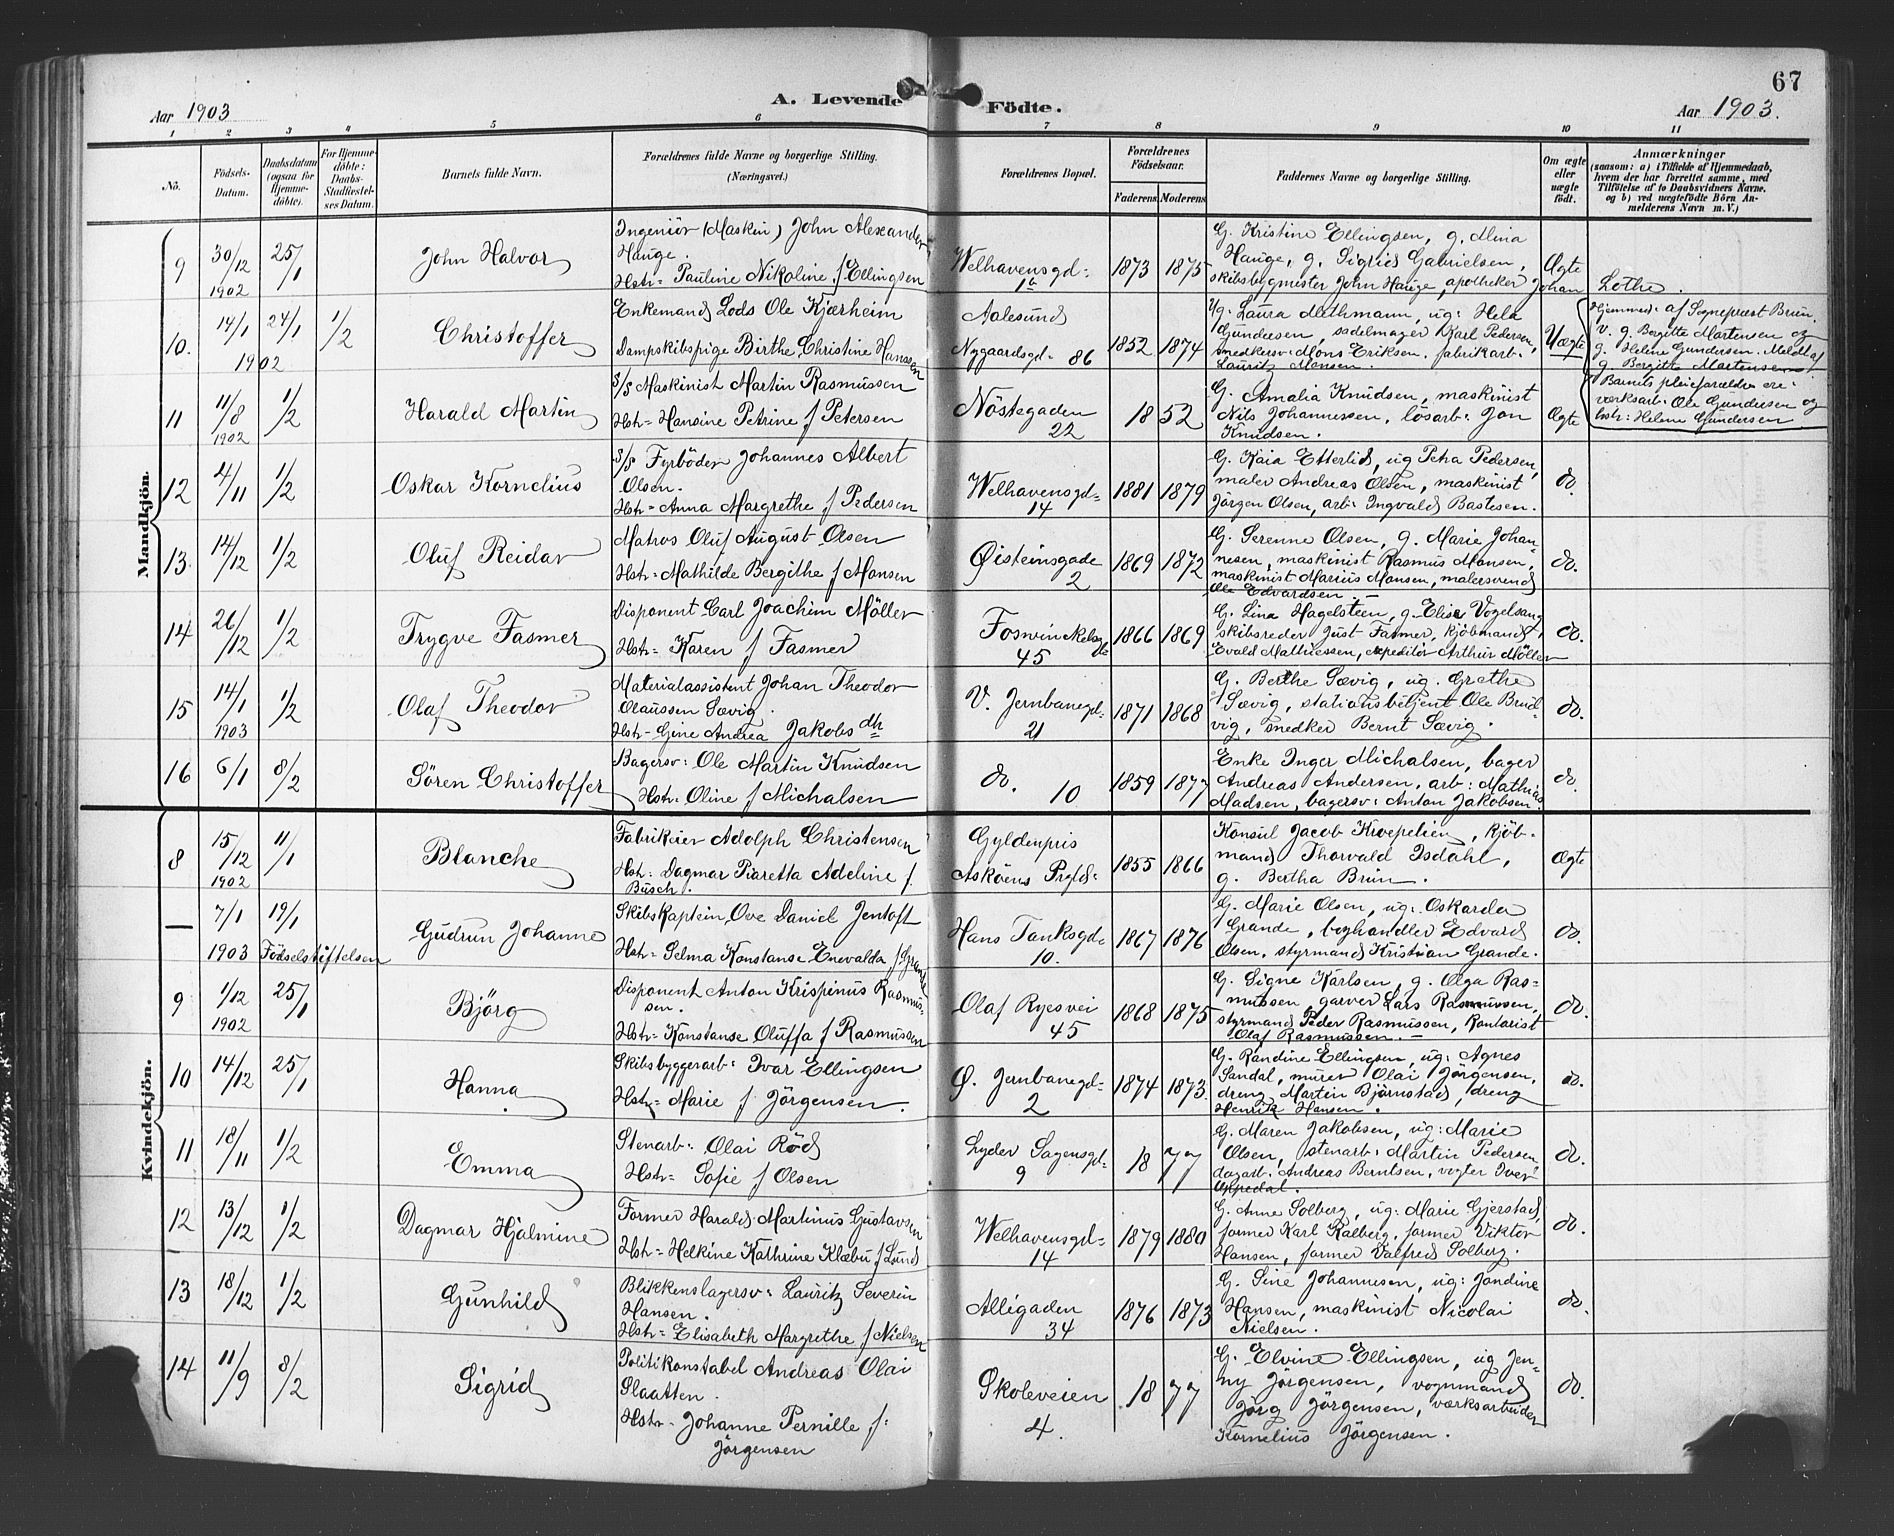 67
Aar 1903
A. Levende Födte.
Aar 1903.
1 2 3 4 5 6 7 8 9 10 11
No.
Födsels-Datum.
Daabsdatum (ogsaa for Hjemme-döbte).
For Hjemme-döbte: Daabs-Stadfæstel-ses Datum.
Barnets fulde Navn.
Forældrenes fulde Navne og borgerlige Stilling. (Næringsvei.)
Forældrenes Bopæl.
Forældrenes Födselsaar.
Faderens Moderens
Faddernes Navne og borgerlige Stilling.
Om ægte eller uægte födt.
Anmærkninger (saasom: a) i Tilfælde af Hjemmedaab, hvem der har forrettet samme, med Tilföielse af to Daabsvidners Navne, og b) ved uægtefödte Börn An-melderens Navn m. V.)
Mandkjön.
9 30/12 1902 25/1 John Halvor
Ingeniör (Maskin) John Alexander
Hauge.
Hstr= Pauline Nikoline f Ellingsen
Welhavensgd= 1b 1873 1875
G. Kristine Ellingsen, g. Mina
Hauge, g. Sigrid Gabrielsen,
skibsbygmester John Hauge, apotheker Johan Lothe.
Ægte
10. 14/1 1902 24/1 1/2 Christoffer
Enkemand Lods Ole Kjærheim
Dampskibspige Birthe Christine Hanssen
Aalesund
Nygaardsgd= 86 1852 1874
Ug: Laura Methmann, ug: Hela
Gundersen, sadelmager Karl Pedersen,
snedkersv: Mons Eriksen, fabrikarb:
Lauritz Monsen.
Uægte
Hjemmed: af Sognepræst Brun.
v. g. Bergitte Martensen og
g. Helene Gundersen. Meldt af
g. Bergitte Martensen
Barnets pleieforældre ere:
værksarb: Ole Gundersen og
hstr: Helene Gundersen
11 11/8 1902 1/2 Harald Martin
S/S Maskinist Martin Rasmussen
Hstr= Hansine Petrine f Petersen
Nöstegaden 22 1852
G. Amalia Knudsen, maskinist
Nils Johannessen, lösarb: Jon
Knudsen.
Ægte
12 4/11 1/2 Oskar Kornelius
S/S Fyrböder Johannes Albert
Olsen.
Hstr= Anna Margrethe f Pedersen
Welhavensgd= 14 1881 1879
G. Kaia Etterlid, ug Petra Pedersen,
maler Andreas Olsen, maskinist
Jörgen Olsen, arb: Ingvald Bastesen.
do.
13 14/12 1/2 Oluf Reidar
Matros Oluf August Olsen
Hstr= Mathilde Bergithe f Monsen
Øisteinsgade 2 1869 1872
G. Serenne Olsen, g. Marie Johan-
nesen, maskinist Rasmus Monsen,
maskinist Marius Monsen, malersvend
Ole Edvardsen.
do.
14 26/12 1/2 Trygve Fasmer
Disponent Carl Joachim Möller
Hstr= Karen f Fasmer
Foswinckelsgde 45 1866 1869
G. Lina Hagelsteen, g. Elise Vogelsang,
skibsreder Just Fasmer, kjöbmand
Evald Mathiessen, expeditör Arthur Möller
do.
15 14/1 1903 1/2 Olaf Theodor
Materialassistent Johan Theodor
Olaussen Sævig.
Hstr= Gine Andrea Jakobsdtr
V. Jernbanegd= 21 1871 1868
G. Berthe Sævig, ug. Grethe
Sævig, stationsbetjent Ole Brud-
vig, snedker Bernt Sævig.
do.
16 6/1 8/2 Sören Christoffer
Bagersv: Ole Martin Knudsen
Hstr: Oline f Michalsen
do. 10 1859 1877
Enke Inger Michalsen, bager
Andreas Andersen, arb: Mathias
Madsen, bagersv: Anton Jakobsen.
do.
Kvindekjön.
8 15/12 1902 11/1 Blanche
Fabrikeier Adolph Christensen
Hstr: Dagmar Piaretta Adeline f.
Busch.
Gyldenpris
Askøens Prgld: 1855 1866
Konsul Jacob Kroepelien, kjöb-
mand Thorvald Isdahl,
g. Bertha Brun.
Ægte
— 7/1 1903 19/1 Födselsstiftelsen Gudrun Johanne
Skibskaptein Ove Daniel Jentoft
Hstr= Selma Konstanse Enevalda f Grande
Hans Tanksgd= 10. 1867 1876
G. Marie Olsen, ug: Oskarda
Grande, boghandler Edvard
Olsen, styrmand Kristian Grande.
do.
9 1/12 1902 25/1 Björg
Disponent Anton Krispinus Rasmus-
sen.
Hstr= Konstanse Oluffa f Rasmussen
Olaf Ryesvei 45 1868 1875
G. Signe Karlsen, g. Olga Ras-
mussen, garver Lars Rasmussen,
styrmand Peder Rasmussen, Kontorist
Olaf Rasmussen.
do.
10 14/12 25/1 Hanna
Skibsbyggerarb: Ivar Ellingsen
Hstr= Marie f Jörgensen.
Ø. Jernbanegd= 2 1874 1873.
G. Randine Ellingsen, ug: Agnes
Sandal, murer Olai Jörgensen,
dreng Martin Bjørnstad, dreng
Henrik Hansen.
do.
11 18/11 1/2 Emma
Stenarb: Olai Röd
Hstr= Sofie f Olsen
Lyder Sagensgd= 9 1877
G. Maren Jakobsen, ug: Marie
Olsen, stenarb: Martin Pedersen
dagarb: Andreas Berntsen, vogter Iver
Oppedal.
do.
12 13/12 1/2 Dagmar Hjalmine
Former Harald Martinus Gustavsen
Hstr= Helkine Kathrine Klæbu f Lund
Welhavensgd= 14 1879 1880
G. Anne Solberg, ug: Marie Gjerstad,
former Karl Kalberg, former Viktor
Hansen, former Valfred Solberg.
do.
13 18/12 1/2 Gunhild
Blikkenslagersv: Lauritz Severin
Hansen.
Hstr= Elisabeth Margrethe f Nielsen
Alligaden 34 1876 1873
G. Sine Johannesen, ug: Jandine
Hansen, maskinist Nicolai
Nielsen.
do.
14 11/9 8/2 Sigrid
Politikonstabel Andreas Olai
Slaatten.
Hstr= Johanne Pernille f:
Jörgensen
Skoleveien 4. 1877
G. Elvine Ellingsen, ug Jen-
ny Jörgensen, vognmand
Jörg Jörgensen, værksarbeider
Kornelius Jörgensen.
do.